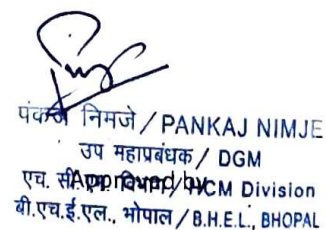 पंकज निमजे / PANKAJ NIMJE
उप महाप्रबंधक / DGM
एच. सी.एम. विभाग / HCM Division
Approved by
बी.एच.ई.एल., भोपाल / B.H.E.L., BHOPAL